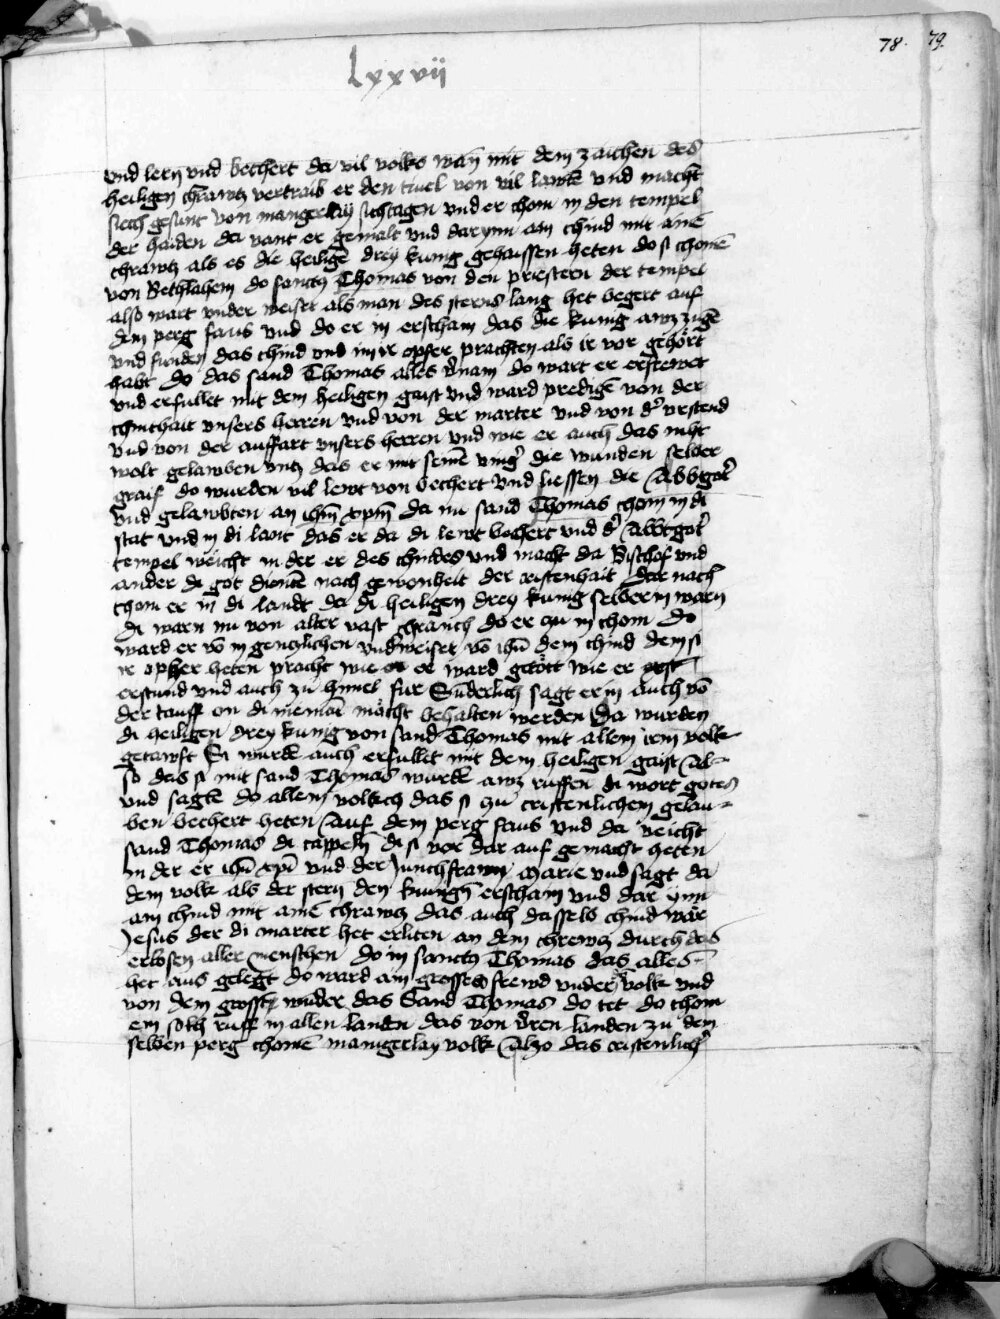 78. 79
Lxxvii
vnd lern vnd bechert da vil volks wan mit dem zaichen des
heiligen chrawtz vertraib er den tiuel von vil lawtē vnd macht
siech gesunt von mangerlay sichtagen vnd er chom in den tempel
der haiden da vant er gemalt vnd darynn ain chind mit ainē
chrawtz als es die heiligē drey kunig gehaissen heten do si chomē
von Bethlahem do sanctus Thomas von den priestern der tempel
also wart vnder weiset als man des sterns lang het begert auf
dem perg faus vnd do er in erscham das die kunig awz zugē
vnd funden das chind vnd im ir opfer prachten als ir vor gehört
habt Do das sand Thomas alles v̾nam do wart er erfrewet
vnd erfullet mit dem heiligen gaist vnd ward predigē von der
chinthait vnsers herren vnd von der marter vnd von d̾ vrstend
vnd von der auffart vnsers herren vnd wie er auch das niht
wolt gelawben vntz das er mit seinē ving̾ die wunden selber
graif do wurden vil lewt von bechert vnd liessen die Abbgöt̾
vnd gelawbten an ihm̄ xpm̄ Da nu sand Thomas chom in di
stat vnd in di lant das er da di lewt bechert vnd d̾ Abbtgöt̾
tempel weicht in der er des chindes vnd macht da Bischof vnd
ander di got dientē nach gewonheit der cristenhait Dar nach
chom er in di landt da di heiligen drey kunig selber in warn
di warn nu von alter vast chranch do er zu in chom Do
ward er vō in gentzlichen vnd'weiset vō ihū dem chind dem si
ir opffer heten pracht wie er ward getött wie er erst
erstund vnd auch zu himel fur Sunderlich sagt er in auch vō
der tauff on di niemāt möcht behalten werden Da wurden
di heiligen drey kunig von sand Thomas mit allem irm volk
getawft Si wurdē auch erfullet mit dem heiligen gaist Al-
so das si mit sand Thomas wurdē awz ruffen di wort gotes
vnd sagtē do allem volkch das si zu cristenlichem gelau-
ben bechert heten Auf dem perg faus vnd da weicht
sand Thomas di cappelln di si vor dar auf gemacht heten
in der er ihū xpi vnd der Junchfrawn Marie vnd sagt da
dem volk als der stern den kunign̄ erscham vnd dar ynn
ain chind mit ainē chrawtz das auch dasselb chind wär
Jesus der di marter het erliten an dem chrewtz durch das
erlosen aller menschen do in sanctus Thomas das alles
het aus gelegt do ward ain grosse frewd vnder volk vnd
von dem grossn̄ wunder das Sand Thomas do tet do chom
ein solh ruff in allen landn das von v̾ren landen zu dem
selben perg chomē manigerlay volk Also das cristenlich̾